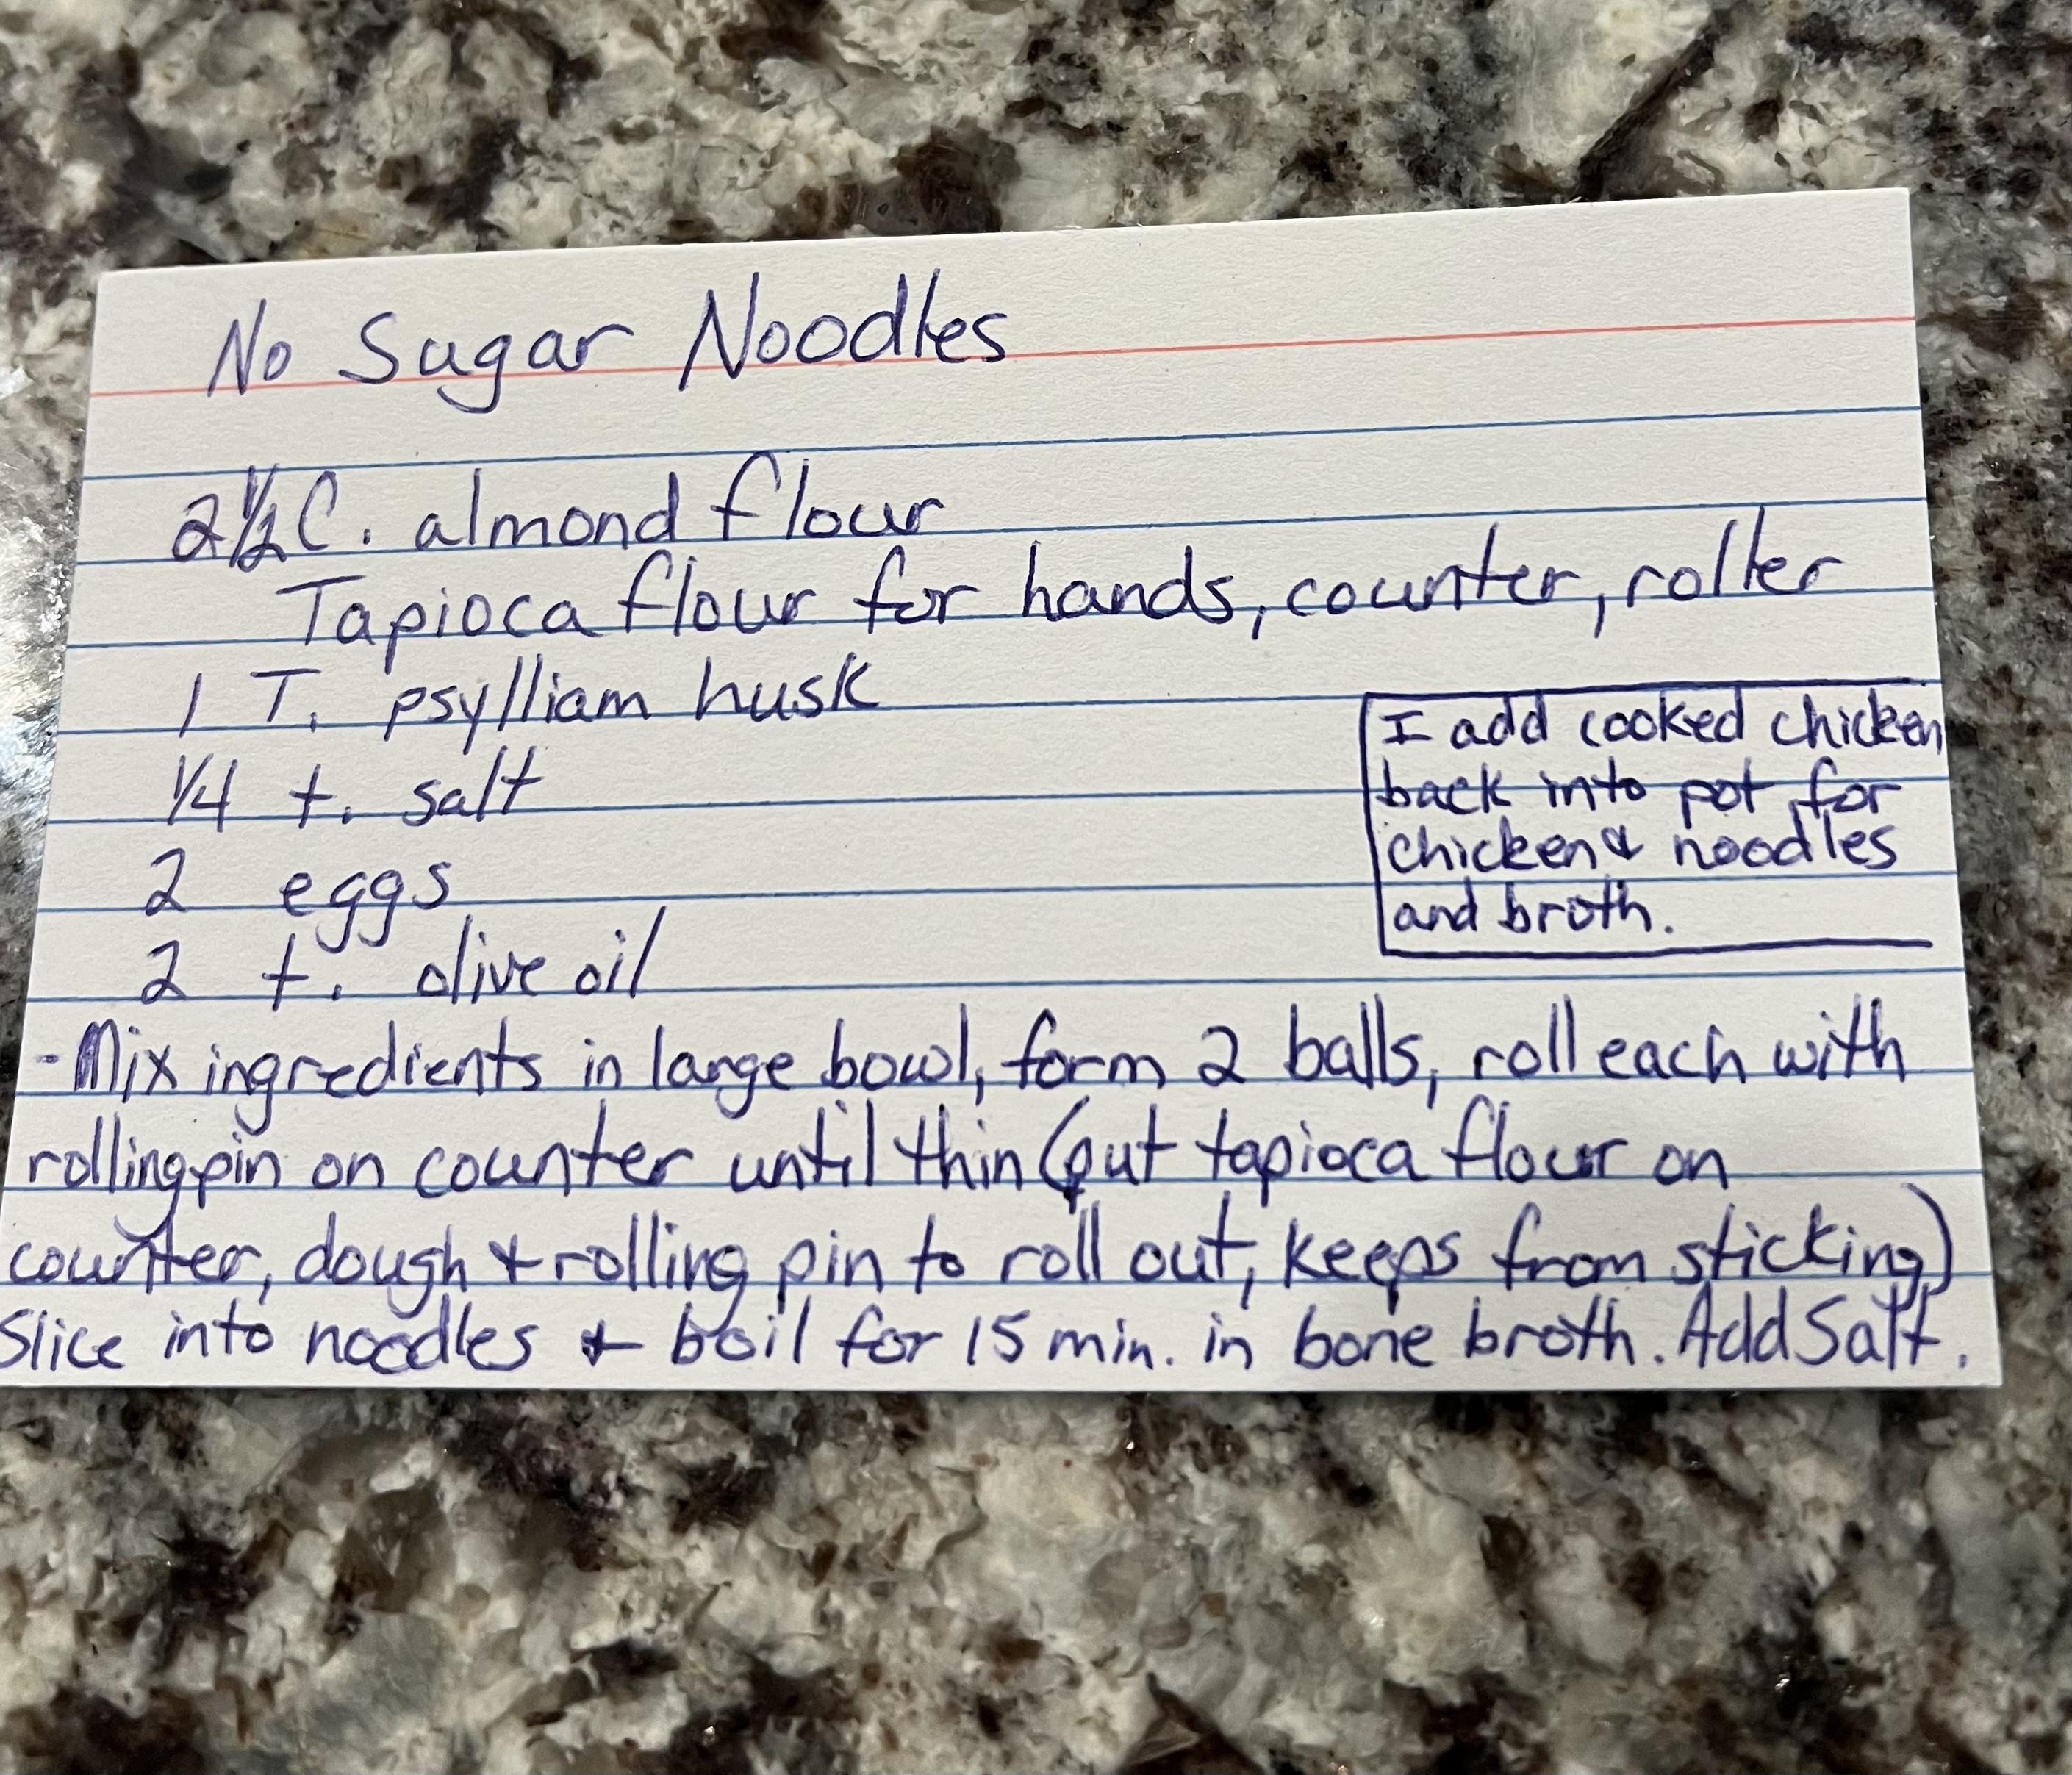 No Sugar Noodles
2 1/2 C. almond flour
Tapioca flour for hands, counter, roller
1 T. psylliam husk
1/4 t. salt
2 eggs
2 t. olive oil
I add cooked chicken
back into pot for
chicken & noodles
and broth.
- Mix ingredients in large bowl, form 2 balls, roll each with
rolling pin on counter until thin (put tapioca flour on
counter, dough & rolling pin to roll out, keeps from sticking)
Slice into noodles & boil for 15 min. in bone broth. Add Salt.